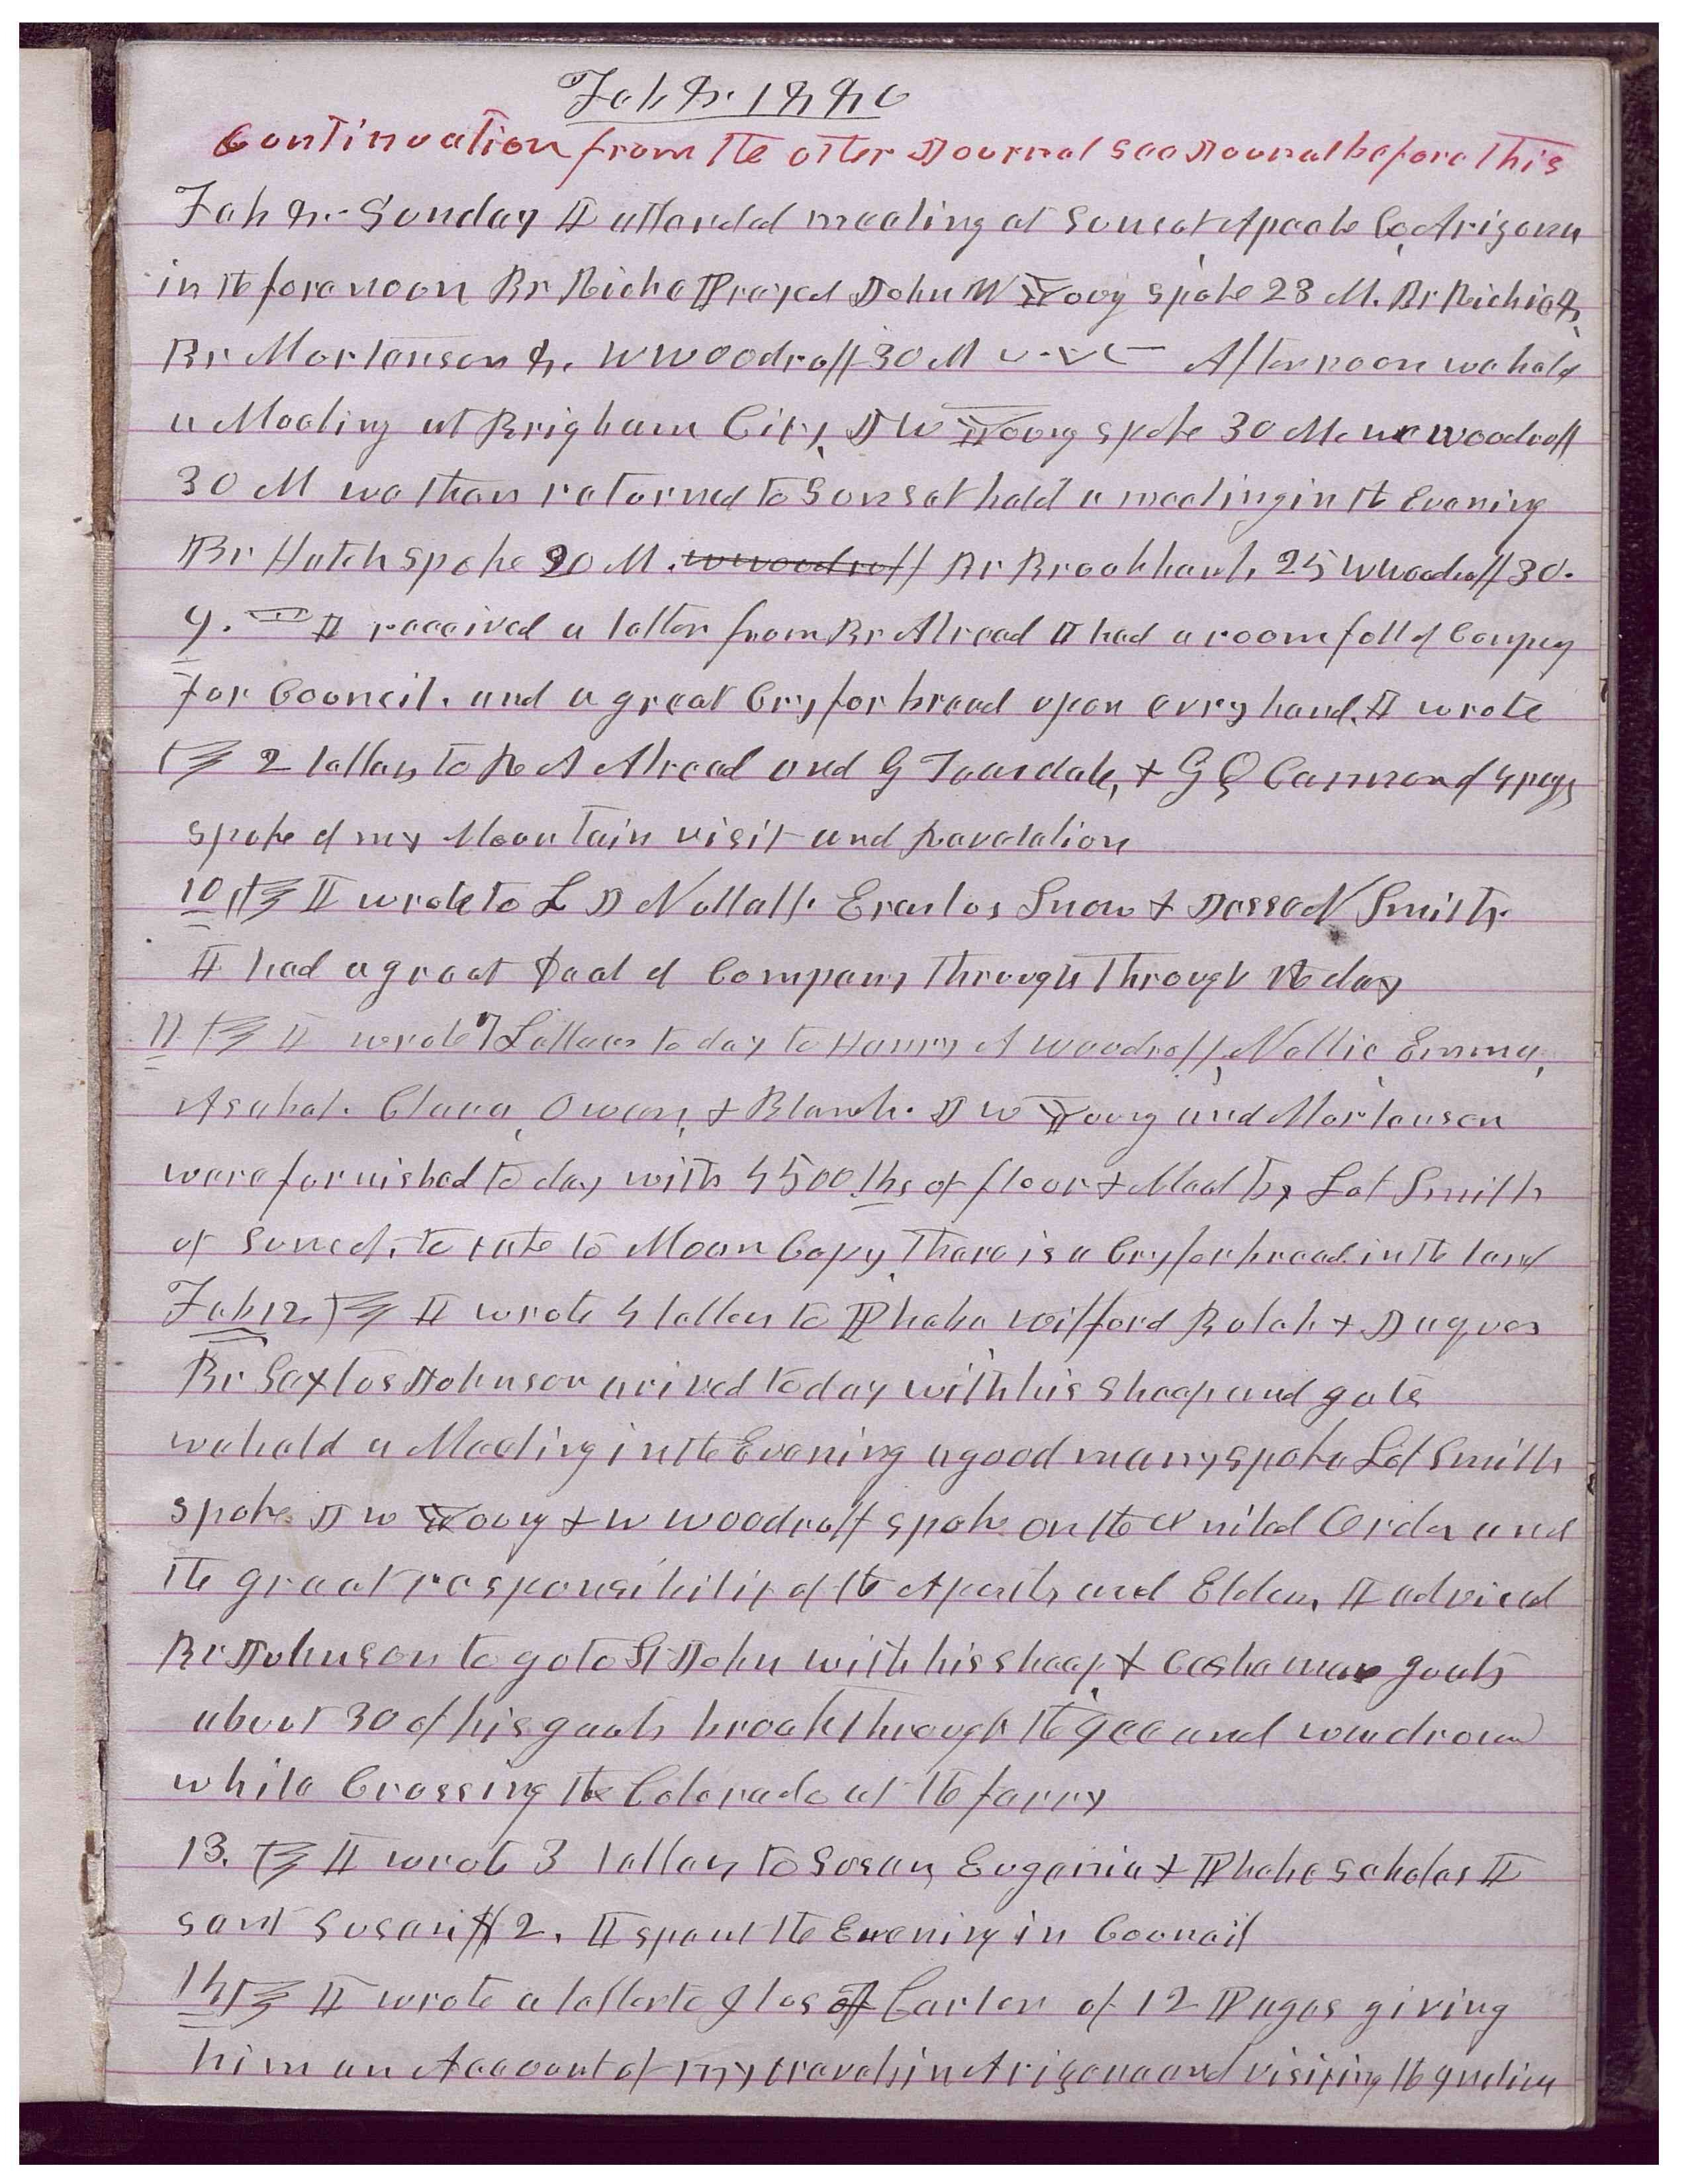 Feb 8. 1880
Continuation from the other Journal see Journal before this
Feb 8.- Sunday I attended meeting at Sunset Apache Co, Arizona
in the forenoon Br Richie Prayed John W Young spoke 28 M. Br Richie 8,
Br Mortenson 8. W Woodruff 30 M Afternoon we held
a Meeting at Brigham City, J W Young spoke 30 M. W Woodruff
30 M we then returned to Sunset held a meeting in the Evening
Br Hatch spoke 20 M. W Woodruff Br Brookbank, 25 W Woodruff 30.
9. I received a letter from Br Atread I had a room full of Compny
for Council. and a great Cry for bread upon evry hand. I wrote
2 letters to Atread and G Teasdale, + G Q Cannon of 4 pages
spoke of my Mountain visit and Revelation
10 I wrote to L J Nuttall. Erastus Snow + Jesse N Smith.
I had a great Deal of Company through through the day
11 I wrote 7 Letters to day to Henry A Woodruff, Nellie Emma,
Asahel. Clara, Owen, + Blanch. J W Young and Mortenson
were furnished to day with 4500 lbs of flour + Meal by Lot Smith
of Sunset, to take to Moan Copy, There is a Cry for bread in the land
Feb 12 I wrote 4 letters to Phebe Wilford Bulah + Jaques
Br Sextus Johnson arived to day with his sheep and gots
we held a Meeting in the Evening a good many spoke Lot Smith
spoke J W Young + W Woodruff spoke on the United Order and
the great responsibility of the Apostls and Elders, I advised
Br Johnson to go to St John with his sheep, + Cashamere goats
about 30 of his goats broak through the Ice and wer drown
while Crossing the Colorado at the ferry
13. I wrote 3 letters to Susan, Eugenia + Phebe Scholes I
sent Susan $2. I spent the Evening in Council
14 I wrote a letter to of Carter of 12 Pages giving
him an Account of my travels in Arizona and visiting the Indian